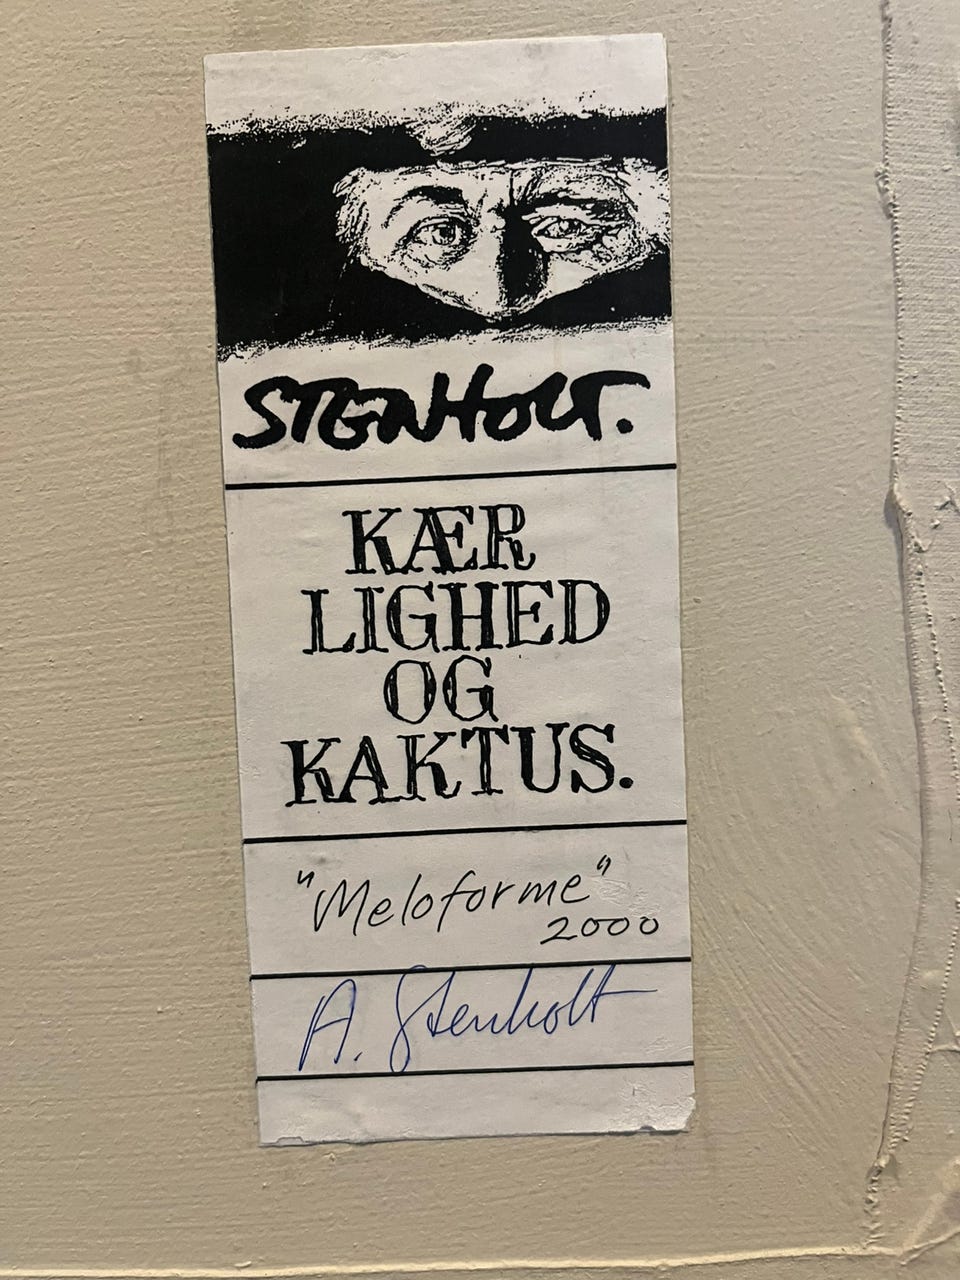 STENHOLT.
KÆR
LIGHED
OG
KAKTUS.
"Meloforme"
2000
A. Stenholt